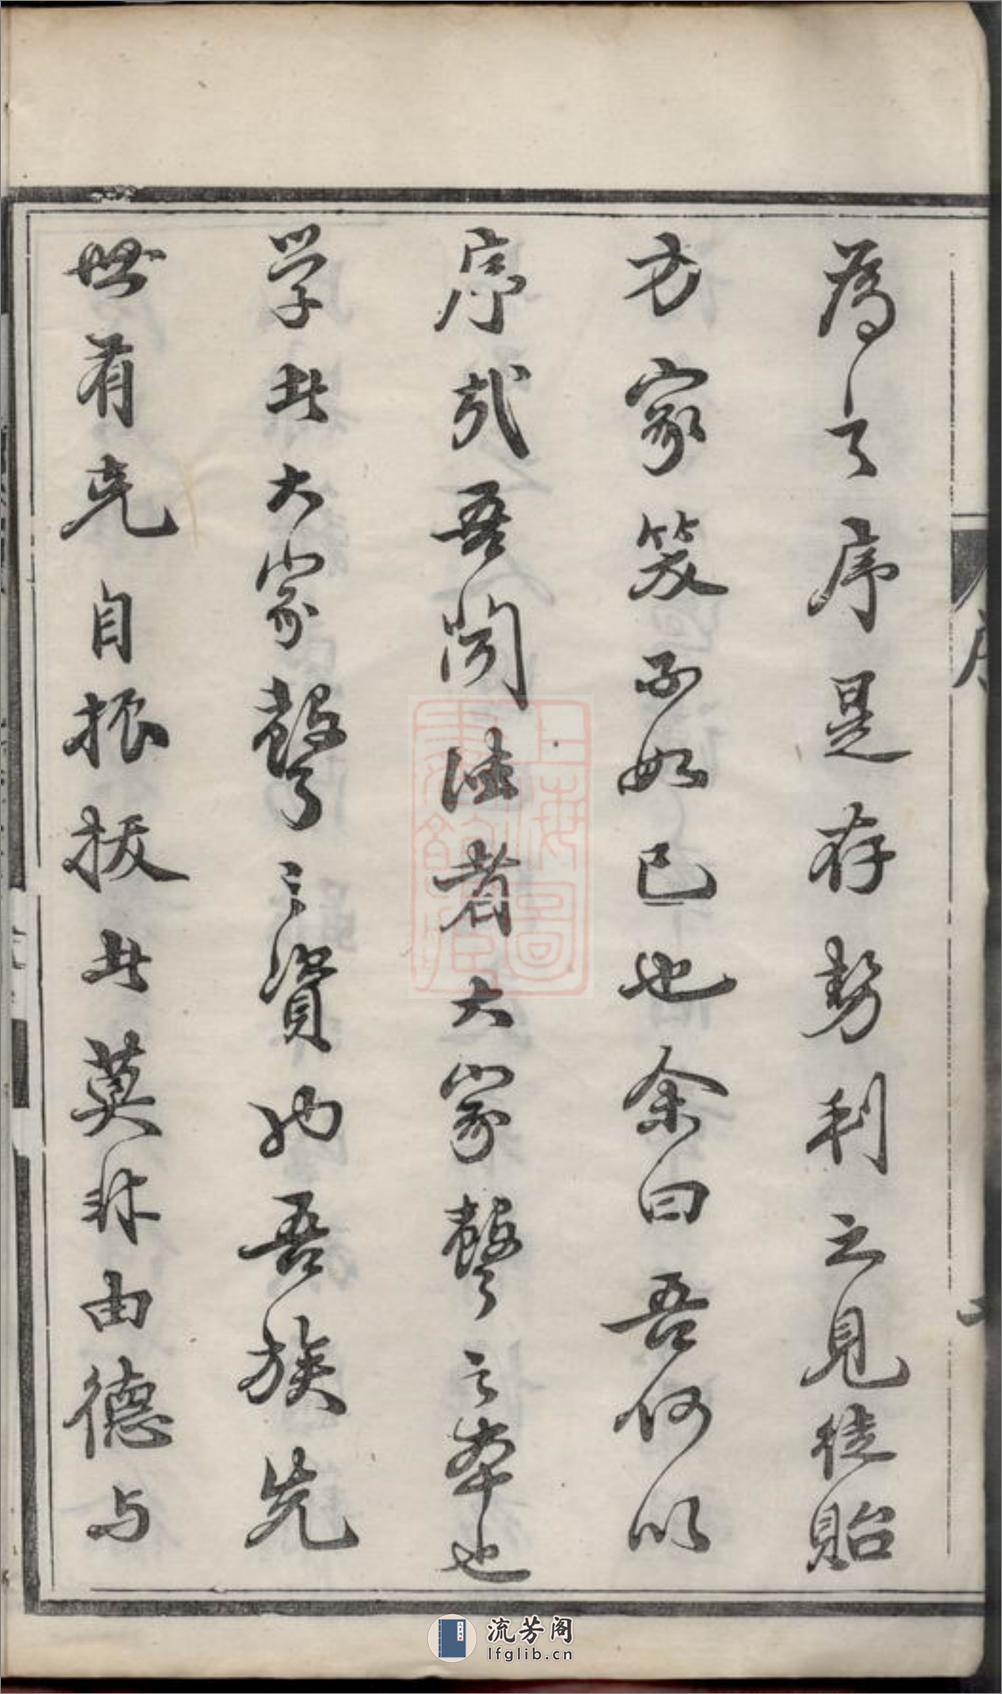 為之序是存勢利之見徒貽
方家笑不如已也余曰吾何以
序哉吾聞德者大家聲之本也
学者大家聲之資也吾族先
世有克自振拔者莫非由德与
序
上海圖書館藏
流芳阁
lfglib.cn